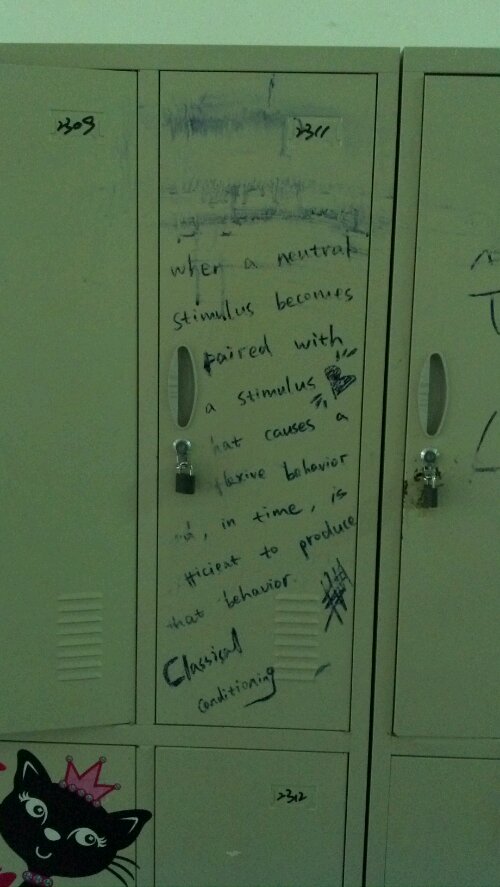 2309
2311
when a neutral
stimulus becomes
paired with
a stimulus
hat causes a
flexive behavior
, in time, is
fficient to produce
that behavior
Classical
conditioning
2312